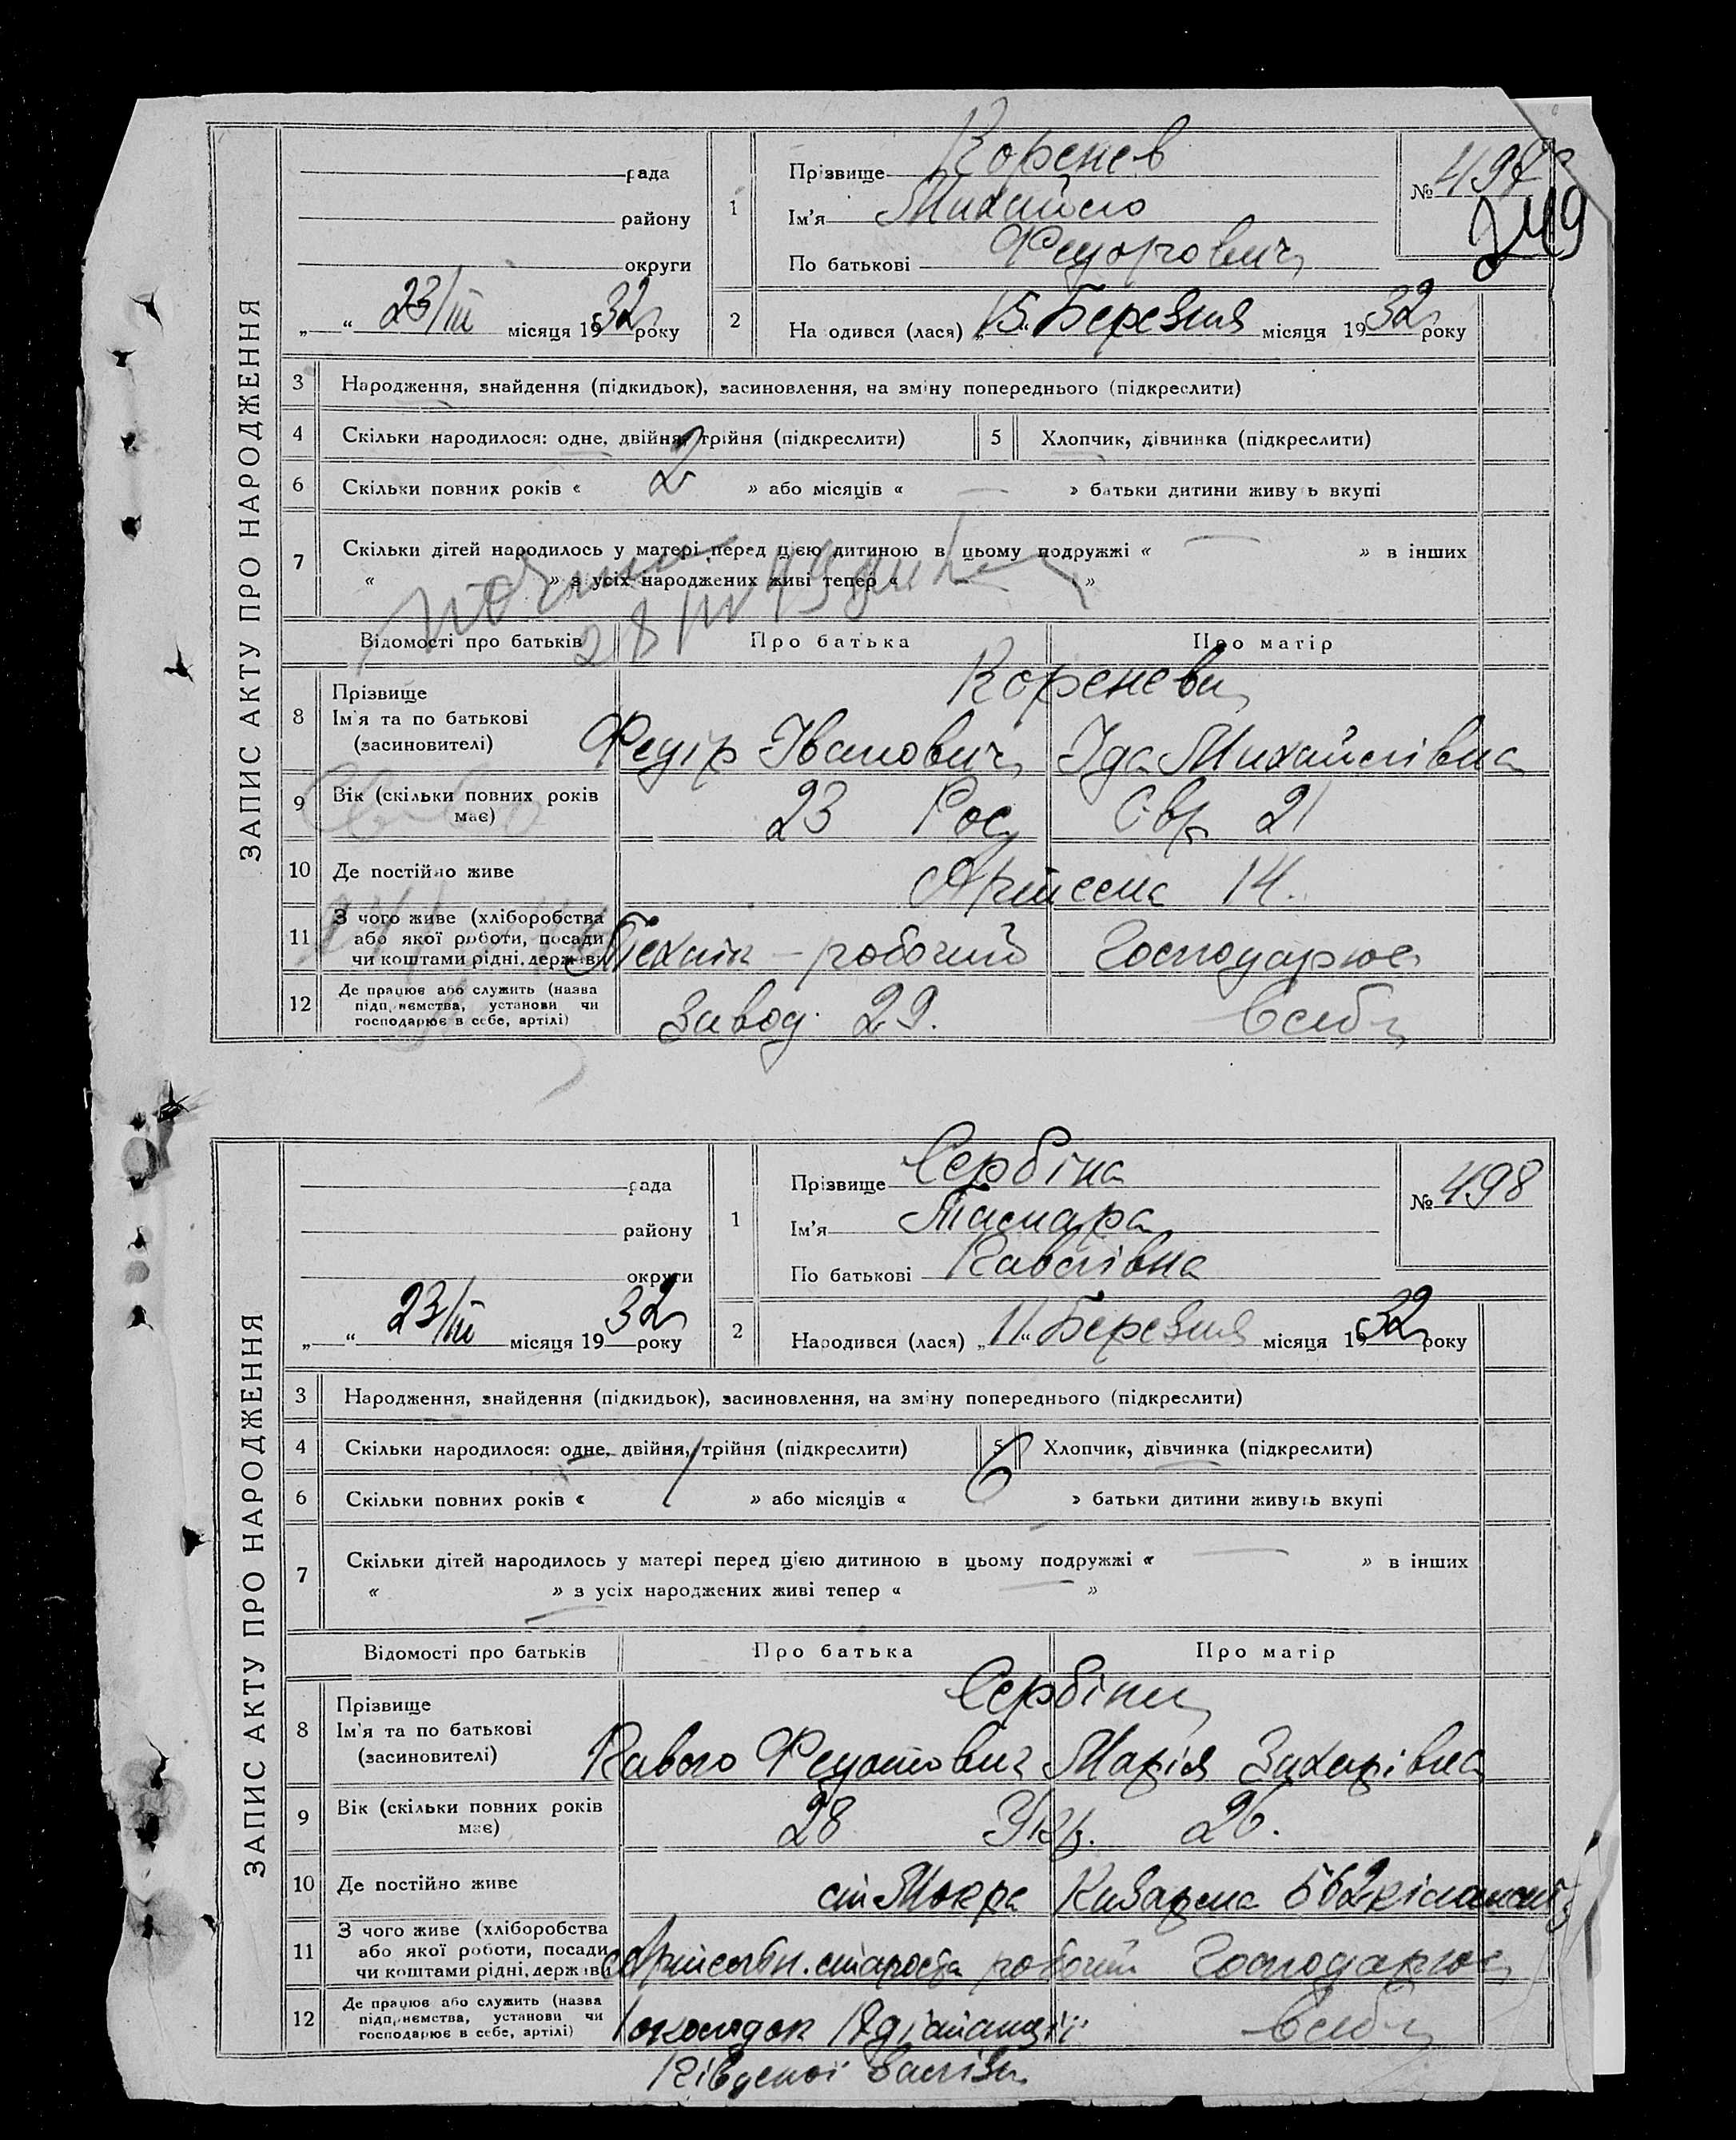 ЗАПИС АКТУ ПРО НАРОДЖЕННЯ
рада
району
округи
„ “ 23/III місяця 1932 року
1 Прізвище Коренев
Ім'я Михайло
По батькові Федорович
№ 497
249
2 На одився (лася) „15“ Березня місяця 1932 року
3 Народження, знайдення (підкидьок), засиновлення, на зміну попереднього (підкреслити)
4 Скільки народилося: одне, двійня, трійня (підкреслити) 5 Хлопчик, дівчинка (підкреслити)
6 Скільки повних років « 2 » або місяців « — » батьки дитини живуть вкупі
7 Скільки дітей народилось у матері перед цією дитиною в цьому подружжі « — » в інших
« » з усіх народжених живі тепер « »
Відомості про батьків Про батька Про матір
8 Прізвище Кореневи
Ім'я та по батькові Федір Іванович Іда Михайлівна
(засиновителі)
9 Вік (скільки повних років має) 23 Рос. Євр. 21
10 Де постійно живе Артема 14.
11 З чого живе (хліборобства
або якої роботи, посади
чи коштами рідні, держави Технік – робочий Господарює
12 Де працює або служить (назва
підприємства, установи чи
господарює в себе, артілі) Завод. 29. В себе
ЗАПИС АКТУ ПРО НАРОДЖЕННЯ
рада
району
округи
„ “ 23/III місяця 1932 року
1 Прізвище Сербіна
Ім'я Тамара
По батькові Павлівна
№ 498
2 Народився (лася) „11“ Березня місяця 1932 року
3 Народження, знайдення (підкидьок), засиновлення, на зміну попереднього (підкреслити)
4 Скільки народилося: одне, двійня, трійня (підкреслити) 5 Хлопчик, дівчинка (підкреслити)
6 Скільки повних років « 1 » або місяців « 6 » батьки дитини живуть вкупі
7 Скільки дітей народилось у матері перед цією дитиною в цьому подружжі « — » в інших
« — » з усіх народжених живі тепер « — »
Відомості про батьків Про батька Про матір
8 Прізвище Сербіни
Ім'я та по батькові Павло Федотович Марія Захарівна
(засиновителі)
9 Вік (скільки повних років має) 28 Укр. 26.
10 Де постійно живе ст Мокра Казарма
11 З чого живе (хліборобства
або якої роботи, посади
чи коштами рідні, держав Артельн. староста робочий Господарює
12 Де працює або служить (назва
підприємства, установи чи
господарює в себе, артілі) околодок дістанції В себе
Південої